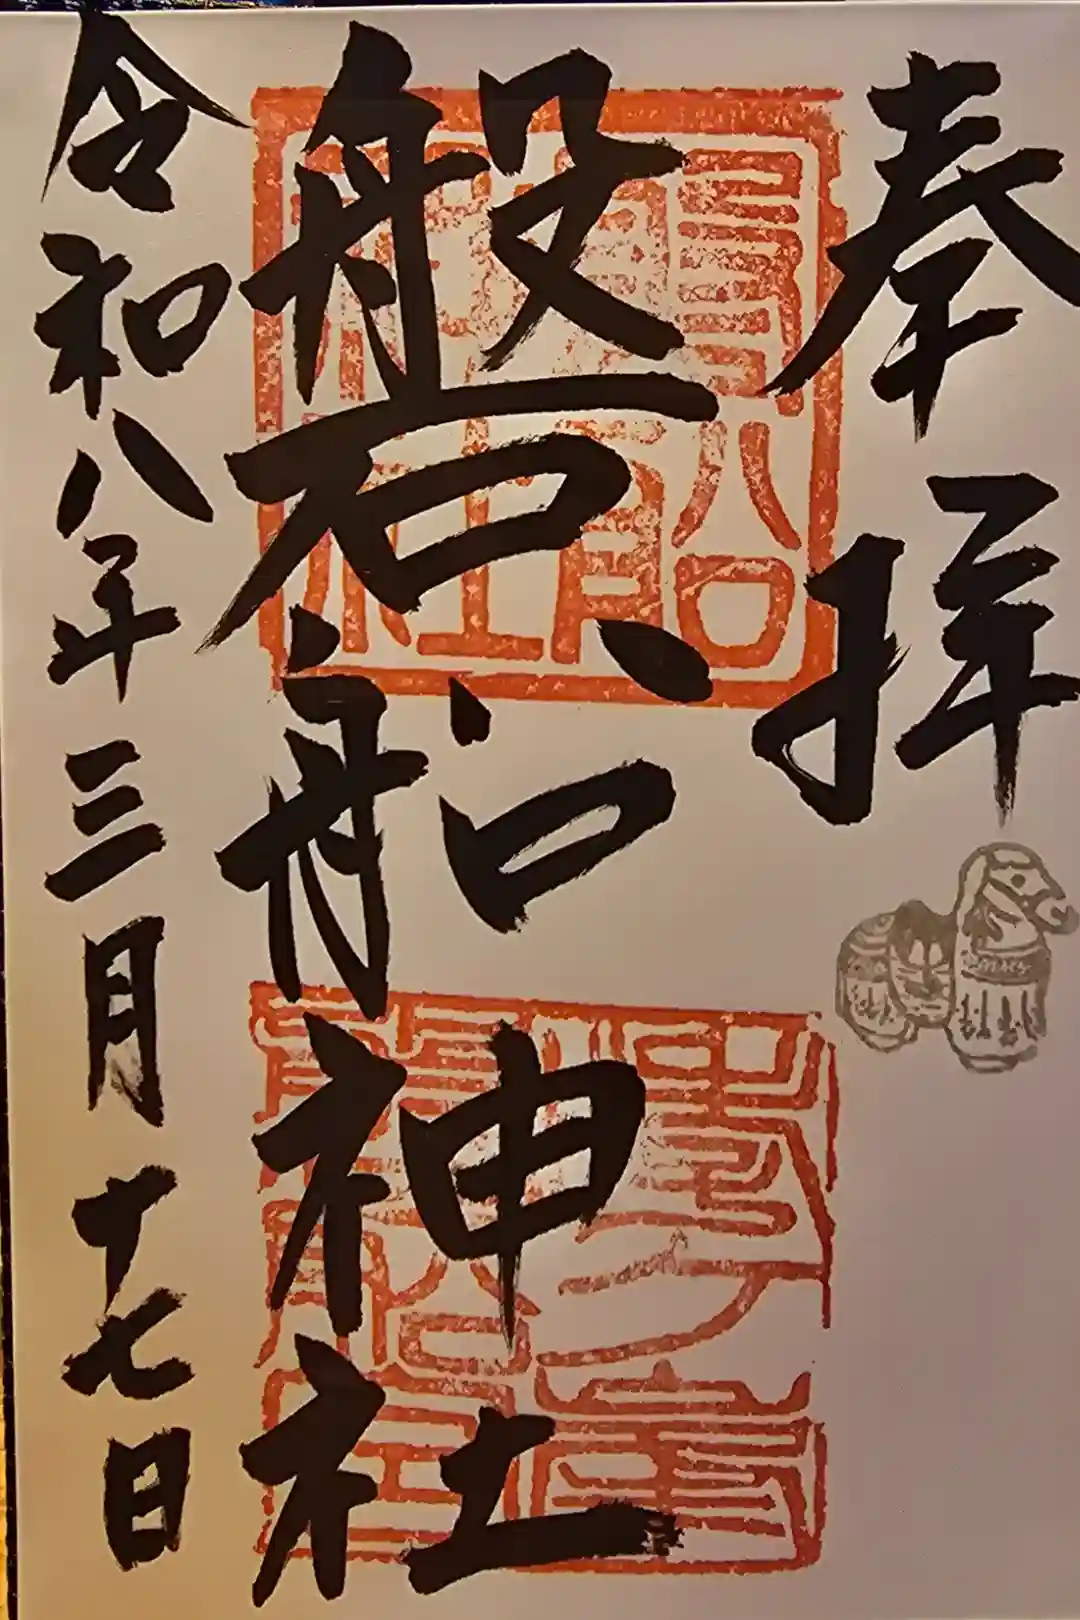 奉拝
磐船神社
令和八年三月十七日